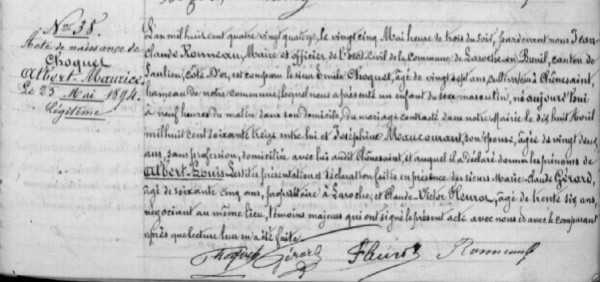 Nro 38.
Acte de naissance de
Choquel
Albert Maurice
Le 25 Mai 1894.
Légitime
L'an mil huit cent quatre vingt quatorze, le vingt cinq Mai heure de trois du soir, par devant nous Jean
Claude Bonneau, Maire et officier de l'État Civil de la commune de Laroche en Brenil, canton de
Saulieu, Côte d'Or, est comparu le sieur Emile Choquel, âgé de vingt sept ans, cultivateur à Chênesaint,
hameau de notre commune, lequel nous a présenté un enfant du sexe masculin, né aujourd'hui
à neuf heures du matin dans son domicile, du mariage contracté dans notre Mairie le dix huit Avril
mil huit cent soixante treize entre lui et Joséphine Maucomant, son épouse, âgée de vingt deux
ans, sans profession, domiciliée avec lui audit Chênesaint, et auquel il a déclaré donner les prénoms de
Albert-Louis. Lesdites présentation et déclaration faites en présence des sieurs Marie-Claude Gérard,
âgé de soixante cinq ans, propriétaire à Laroche, et Claude-Victor Fleurot, âgé de trente six ans,
négociant au même lieu, témoins majeurs qui ont signé le présent acte avec nous et avec le comparant
après que lecture leur en a été faite.
Choquel Gérard Fleurot Bonneau